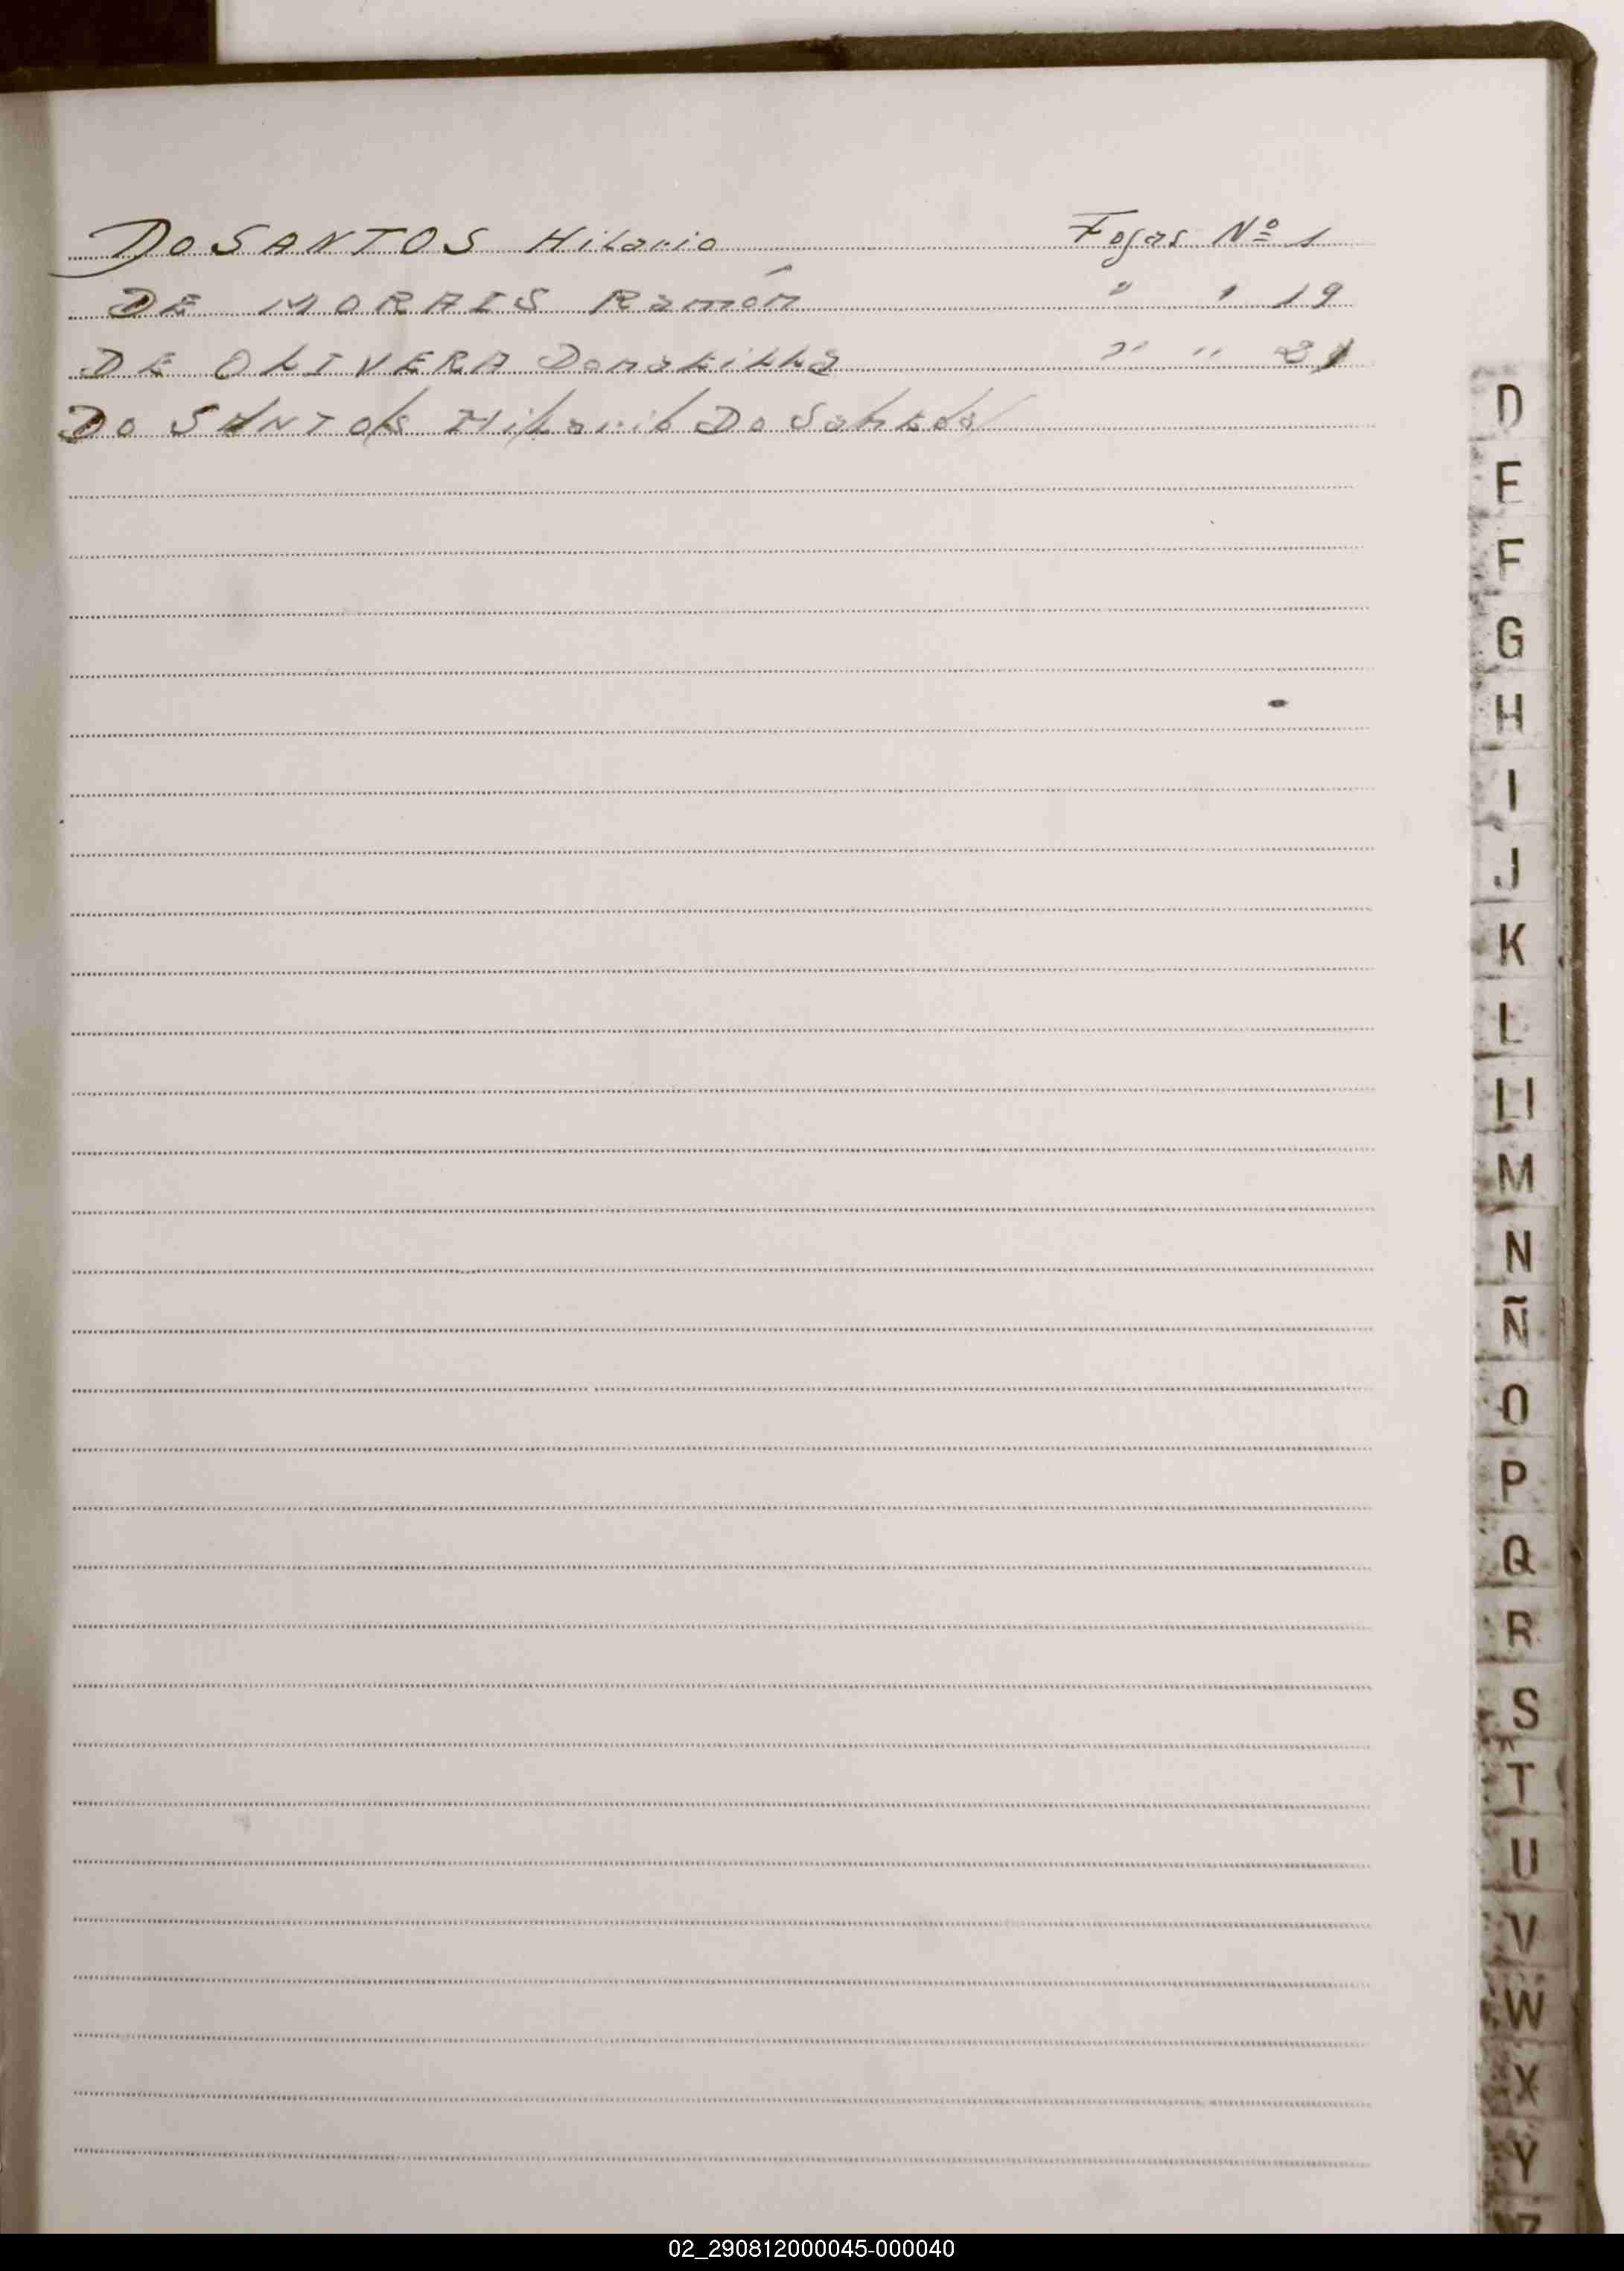 DO SANTOS Hilario Fojas Nº 1
DE MORAIS Ramón " " 19
DE OLIVERA Donatilla " " 21
DO SANTOS Hilario Do Santos
D
E
F
G
H
I
J
K
L
Ll
M
N
Ñ
O
P
Q
R
S
T
U
V
W
X
Y
Z
02_290812000045-000040